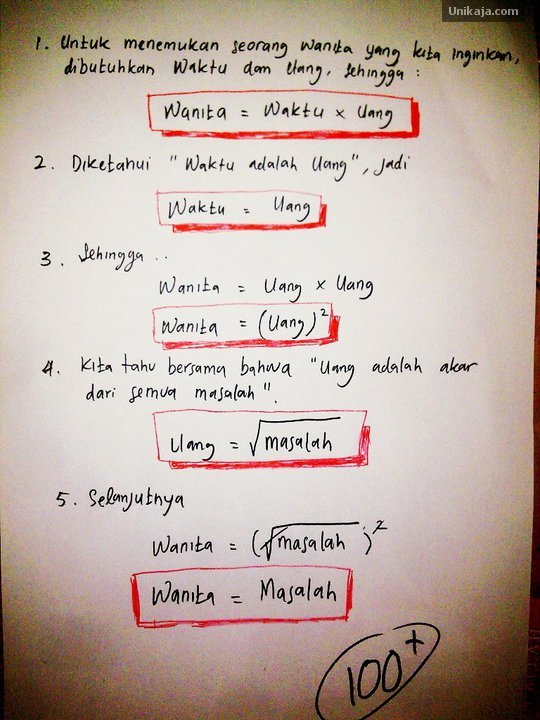 Unikaja.com
1. Untuk menemukan seorang wanita yang kita inginkan,
dibutuhkan Waktu dan Uang, sehingga :
Wanita = Waktu x Uang
2. Diketahui "Waktu adalah Uang", jadi
Waktu = Uang
3. Sehingga ..
Wanita = Uang x Uang
Wanita = (Uang)²
4. Kita tahu bersama bahwa "Uang adalah akar
dari semua masalah".
Uang = √masalah
5. Selanjutnya
Wanita = (√masalah)²
Wanita = Masalah
100+